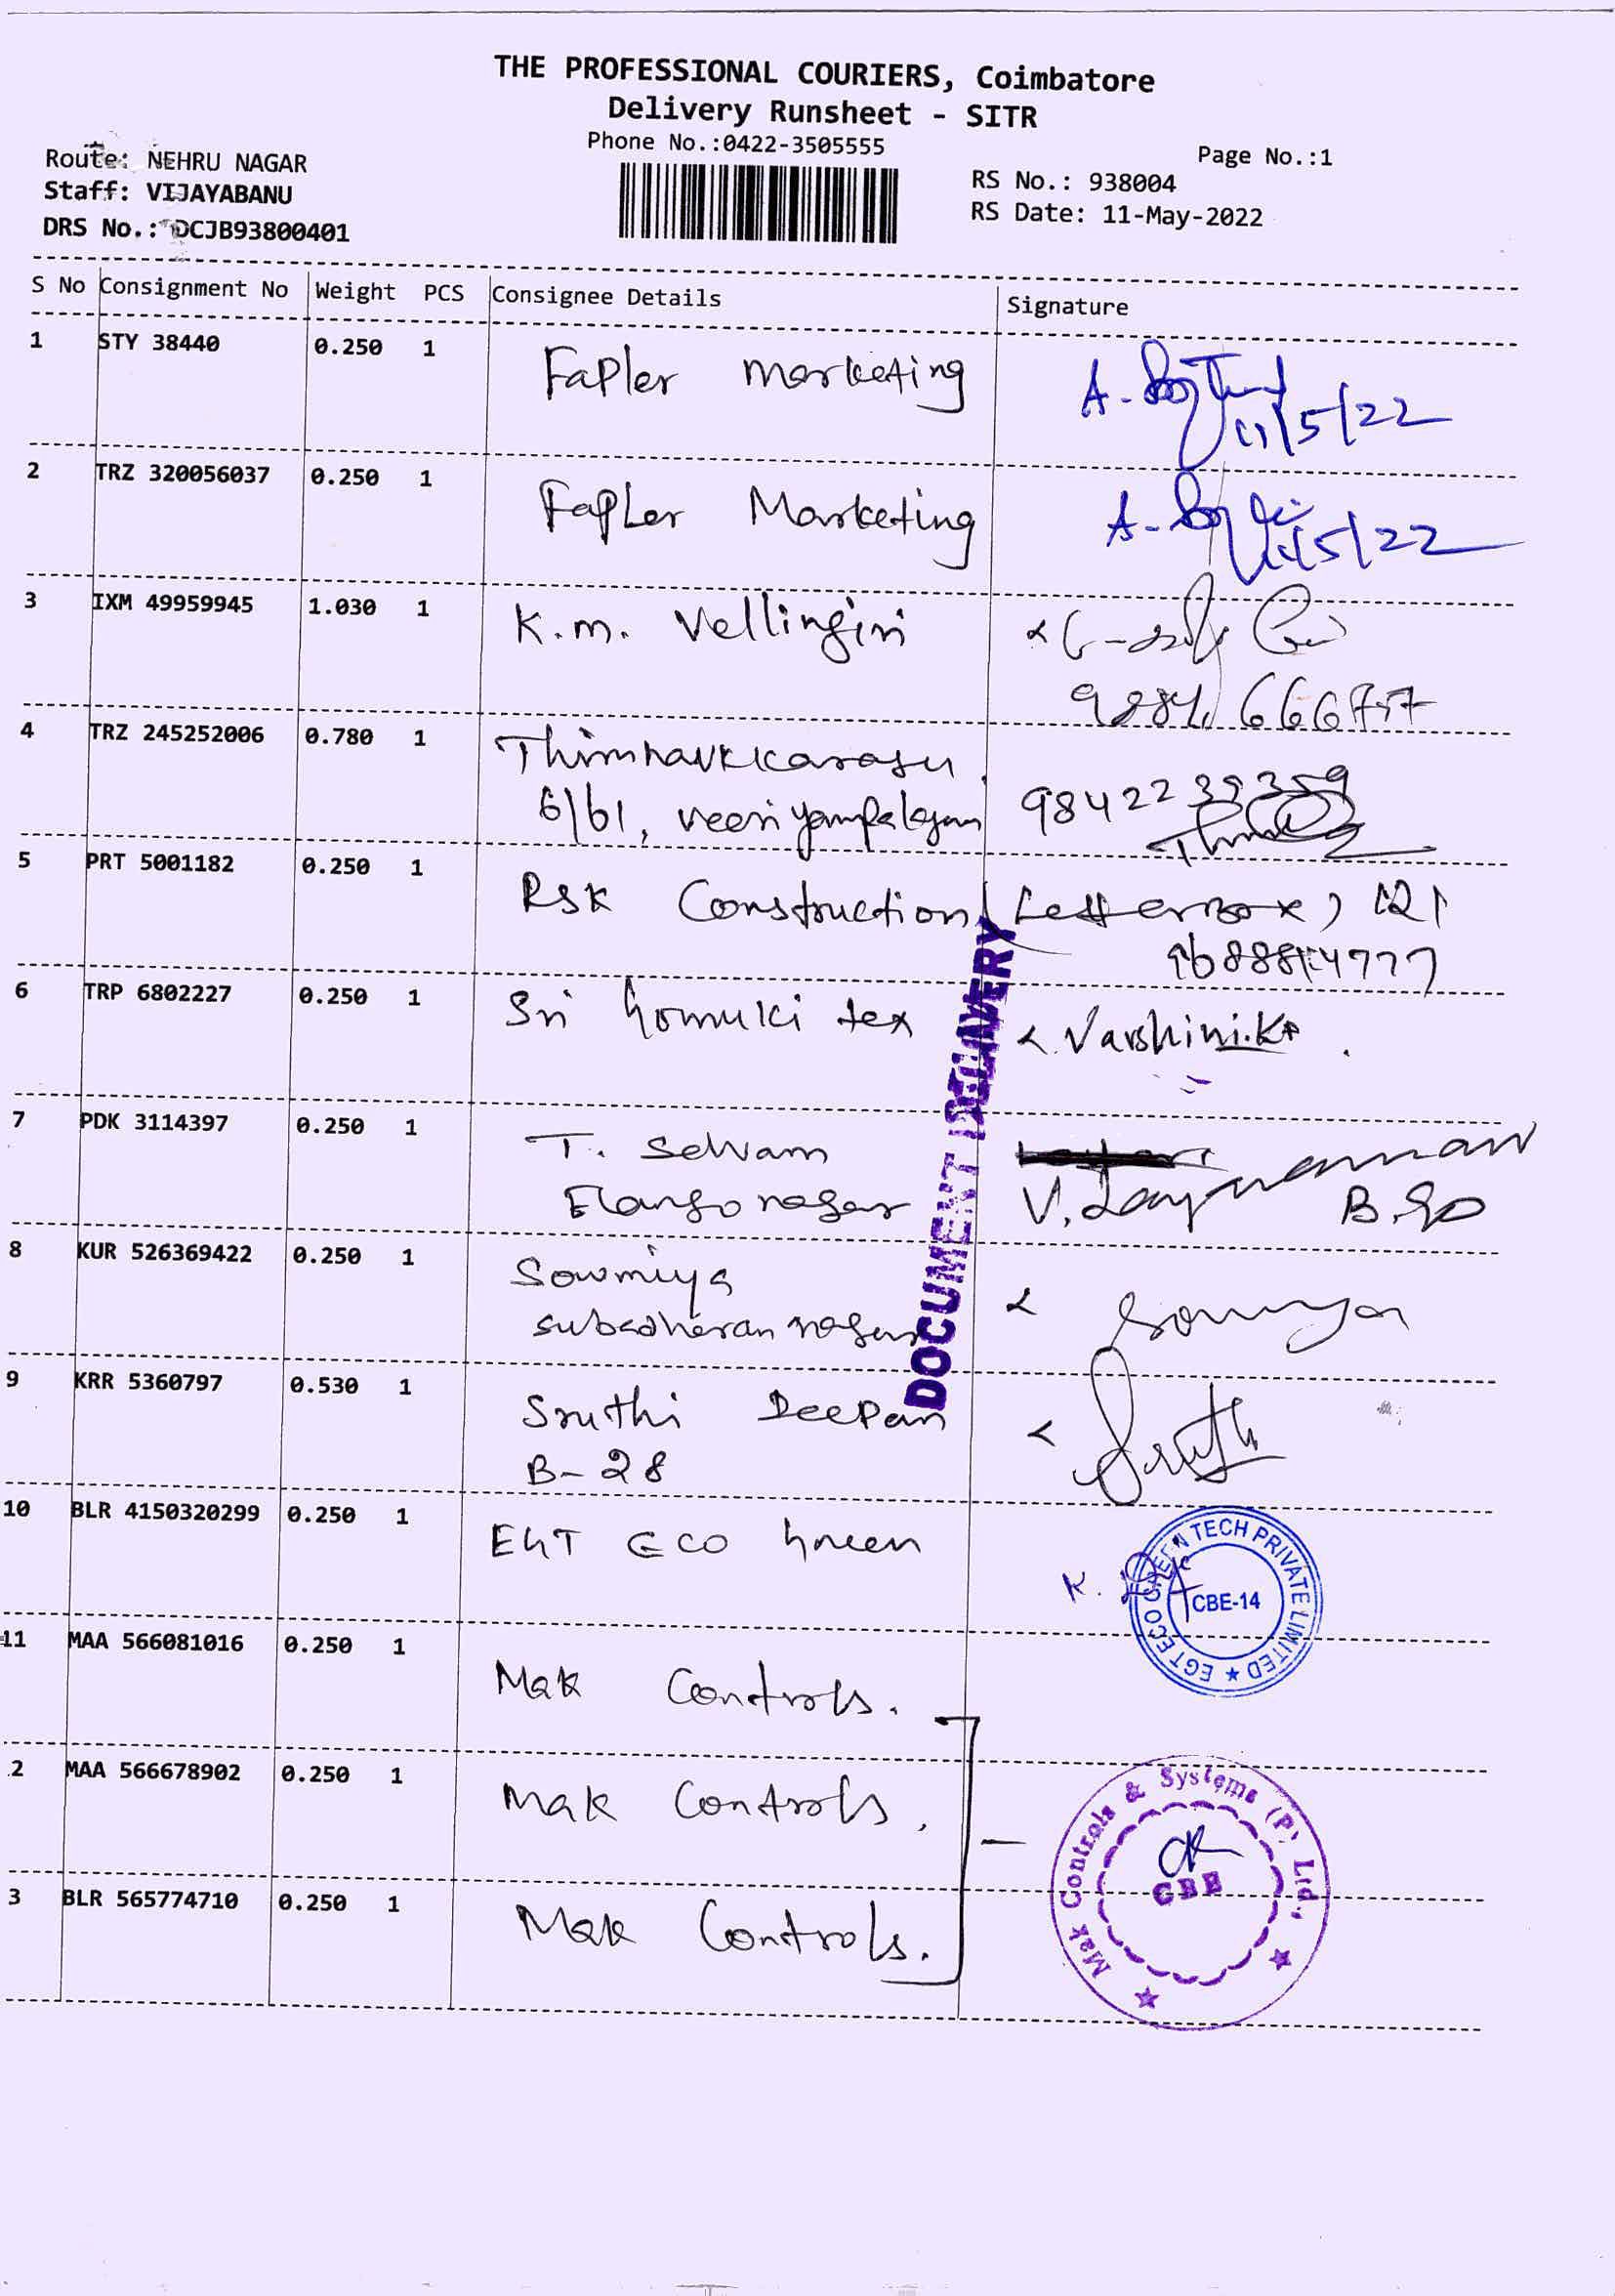 THE PROFESSIONAL COURIERS, Coimbatore
Delivery Runsheet - SITR
Phone No.:0422-3505555
Page No.:1
Route: NEHRU NAGAR
Staff: VIJAYABANU
DRS No.: DCJB93800401
RS No.: 938004
RS Date: 11-May-2022
S No Consignment No Weight PCS Consignee Details Signature
1 STY 38440 0.250 1 Fapler marketing A. 11/5/22
2 TRZ 320056037 0.250 1 Fapler Marketing A. 11/5/22
3 IXM 49959945 1.030 1 K.m. Vellingiri
4 TRZ 245252006 0.780 1 Thirunavukkarasu
6/61, veeriyampalayam 98422 39359
5 PRT 5001182 0.250 1 RSK Construction Letterbox, 121
6 TRP 6802227 0.250 1 Sri Gomuki tex Varshini.K
7 PDK 3114397 0.250 1 T. Selvam
Elango nagar V. B.
8 KUR 526369422 0.250 1 Sowmiya
subadharan nagar Sowmya
9 KRR 5360797 0.530 1 Sruthi Deepan
B-28 Sruth
10 BLR 4150320299 0.250 1 EGT ECO Green K.
EGT ECO GREEN TECH PRIVATE LIMITED ★
CBE-14
11 MAA 566081016 0.250 1 Mak Controls.
2 MAA 566678902 0.250 1 Mak Controls.
3 BLR 565774710 0.250 1 Mak Controls.
Mak Controls & Systems (P) Ltd.,
CBE
DOCUMENT DELIVERY